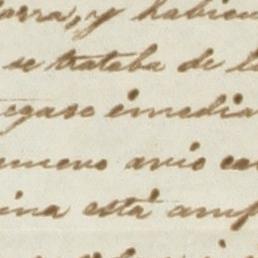 barra, y habien
se trataba de l
egase inmedia
nuevo avio ca
ina está amp